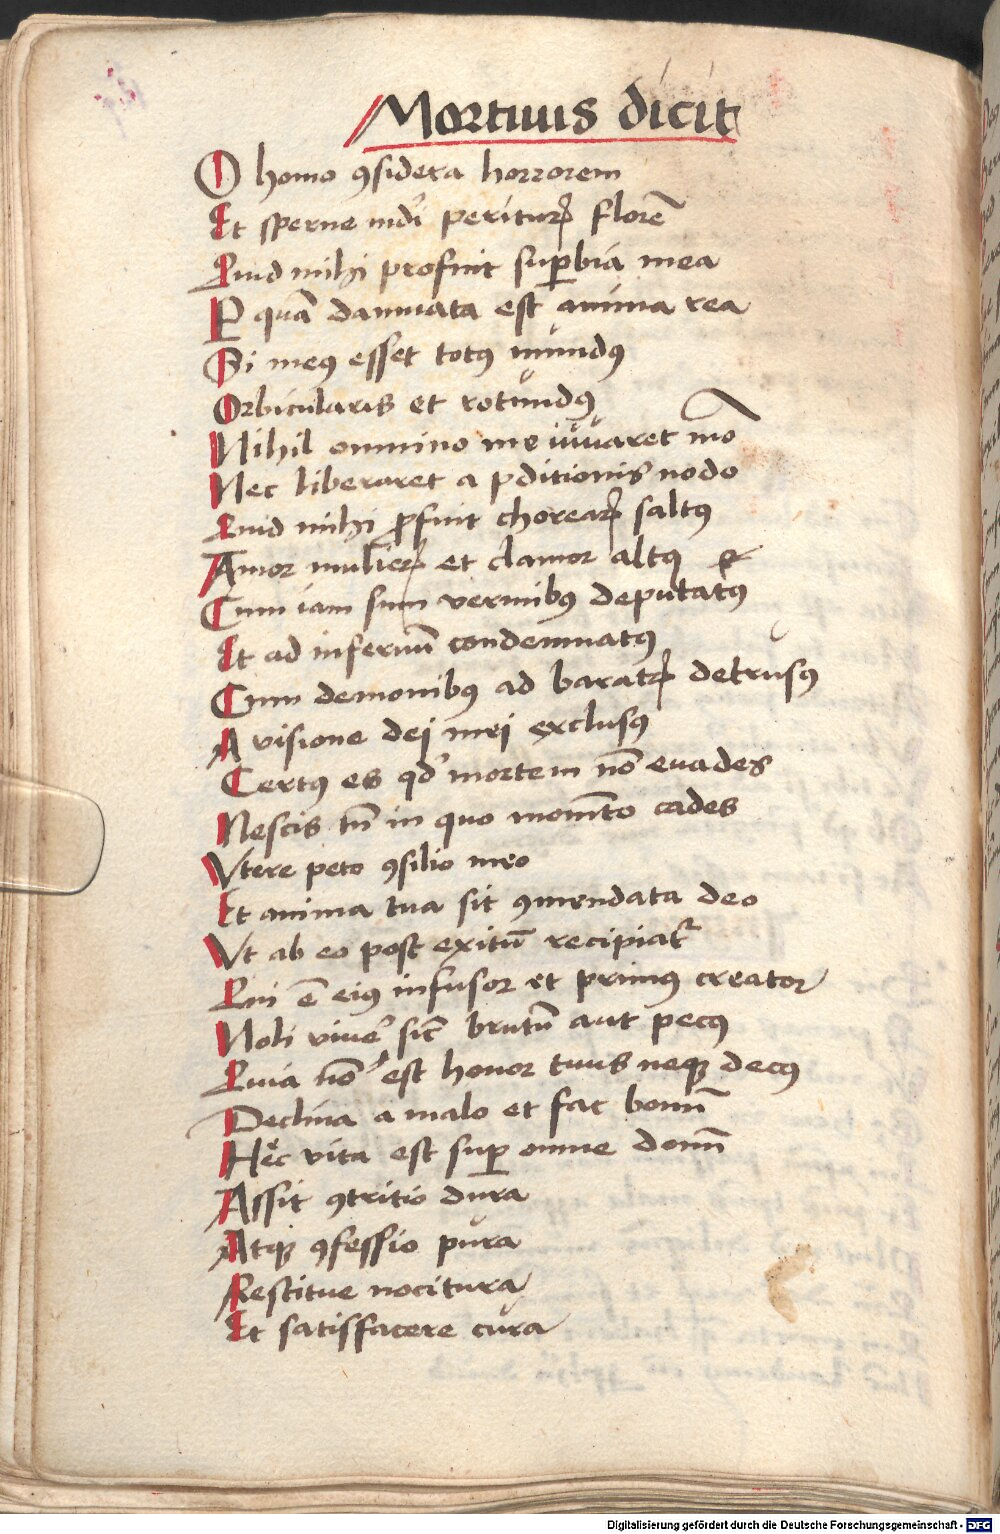 Mortuus dicit
O homo ꝯsidera horrorem
Et sperne mūdi perituꝝ florē
Quid mihi profuit suꝑbia mea
P quā damnata est anima rea
Si meꝰ esset totꝰ mundꝰ
Orbicularis et rotundꝰ
Nihil omnino me iuuaret mō
Nec liberaret a ꝑditionis nodo
Quid mihi ꝓfuit choreaꝝ saltꝰ
Amor mulieꝝ et clamor altꝰ
Cum iam sum vermibꝰ deputatꝰ
Et ad infernū condemnatꝰ
Cum demonibꝰ ad baratꝝ detrusꝰ
A visione dei mei exclusꝰ
Certꝰ es qd' mortem nō euades
Nescis tn̄ in quo momēto cades
Vtere peto ꝯsilio meo
Et anima tua sit ꝯmendata deo
Vt ab eo post exitū recipiat᷑
Qui ē eiꝰ infusor et primꝰ creator
Noli viue' sic̄ brutū aut pecꝰ
Quia nō est honor tuus neqꝫ decꝰ
Declina a malo et fac bonū
Hec vita est suꝑ omne donū
Assit ꝯtritio dura
Atqꝫ ꝯfessio pura
Restitue nocitura
Et satisfacere cura
Digitalisierung gefördert durch die Deutsche Forschungsgemeinschaft - DFG